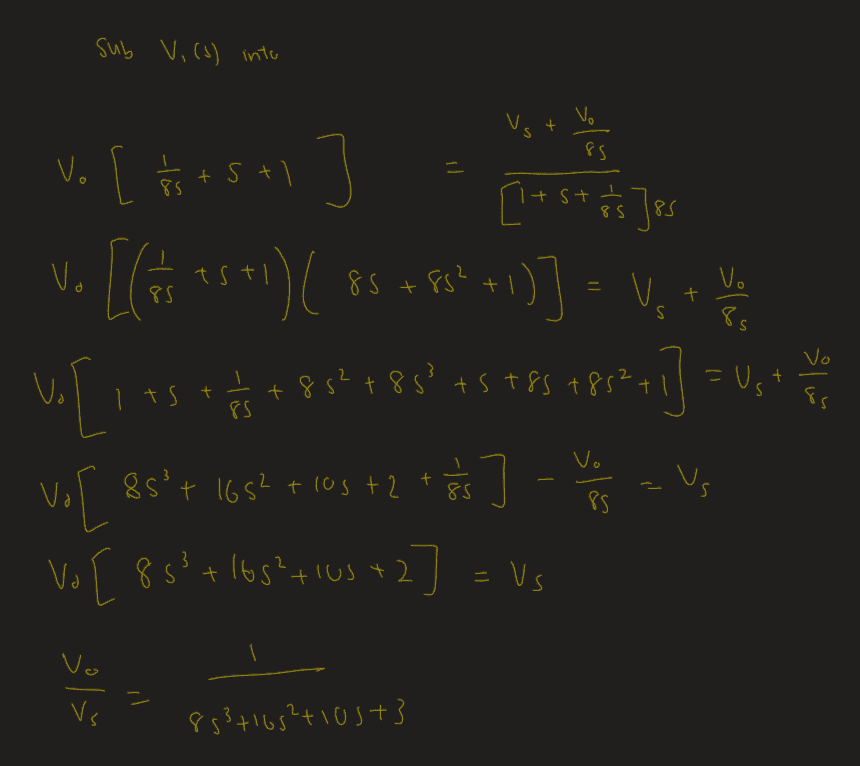 Sub V₁(s) into
V₀ [ 1/8s + s + 1 ] = (Vs + V₀/8s) / ([1 + s + 1/8s] 8s)
V₀ [(1/8s + s + 1)(8s + 8s² + 1)] = Vs + V₀/8s
V₀ [1 + s + 1/8s + 8s² + 8s³ + s + 8s + 8s² + 1] = Vs + V₀/8s
V₀ [8s³ + 16s² + 10s + 2 + 1/8s] - V₀/8s = Vs
V₀ [8s³ + 16s² + 10s + 2] = Vs
V₀/Vs = 1/(8s³ + 16s² + 10s + 3)